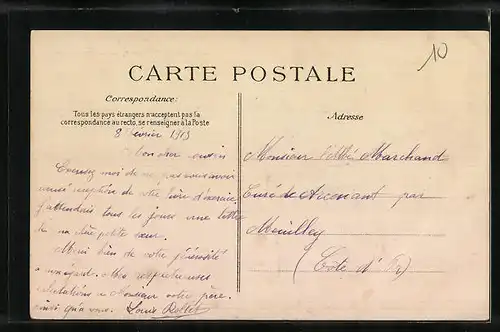 10
CARTE POSTALE
Correspondance:
Tous les pays étrangers n'acceptent pas la
correspondance au recto, se renseigner à la Poste
Adresse
8 Février 1913
Mon cher cousin
Excusez moi de ne pas vous avoir
de votre livre
J'attendais tous les jours une lettre
de ma chère petite sœur.
Merci bien de votre générosité
à mon égard. Mes respectueuses
salutations à Monsieur votre père,
ainsi qu'à vous. Louis
Monsieur l'Abbé Marchand
Curé de par
Meuilley
(Côte d'Or)